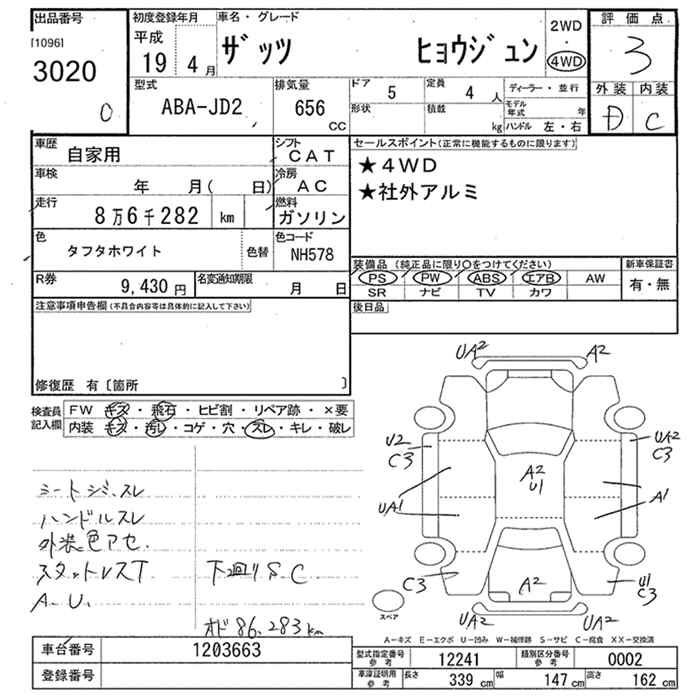 出品番号 初度登録年月 車名・グレード 2WD 評価点
[1096] 平成 ・
3020 19 年 4 月 ザッツ ヒョウジュン 4WD 3
0
型式 排気量 ドア 5 定員 4 人 ディーラー・並行 外装 内装
ABA-JD2 656 CC 形状 積載 kg モデル年式 年 D C
ハンドル 左・右
車歴 自家用 シフト CAT セールスポイント(正常に機能するものに限ります)
車検 年 月( 日) 冷房 AC ★4WD
走行 8万6千282 km 燃料 ガソリン ★社外アルミ
色 タフタホワイト 色替 色コード NH578
R券 9,430 円 名変通知期限 月 日
装備品(純正品に限り○をつけてください) 新車保証書
PS PW ABS エアB AW 有・無
SR ナビ TV カワ
注意事項申告欄(不具合内容等は具体的に記入して下さい) 後日品
修復歴 有〔箇所 〕
検査員記入欄 FW キズ・飛石・ヒビ割・リペア跡・×要
内装 キズ・汚レ・コゲ・穴・スレ・キレ・破レ
シートシミ、スレ
ハンドルスレ
外装色アセ.
スタットレスT 下廻りS.C
A.U.
オド 86,283km
UA2 A2
U2 C3 UA2 C3
A2 U1
UA1 A1
C3 A2 U1 C3
UA2 UA2
スペア
A-キズ E-エクボ U-凹み W-補修跡 S-サビ C-腐食 XX-交換済
車台番号 1203663 型式指定番号 参考 12241 類別区分番号 参考 0002
登録番号 車庫証明用 参考 長さ 339 cm 幅 147 cm 高さ 162 cm